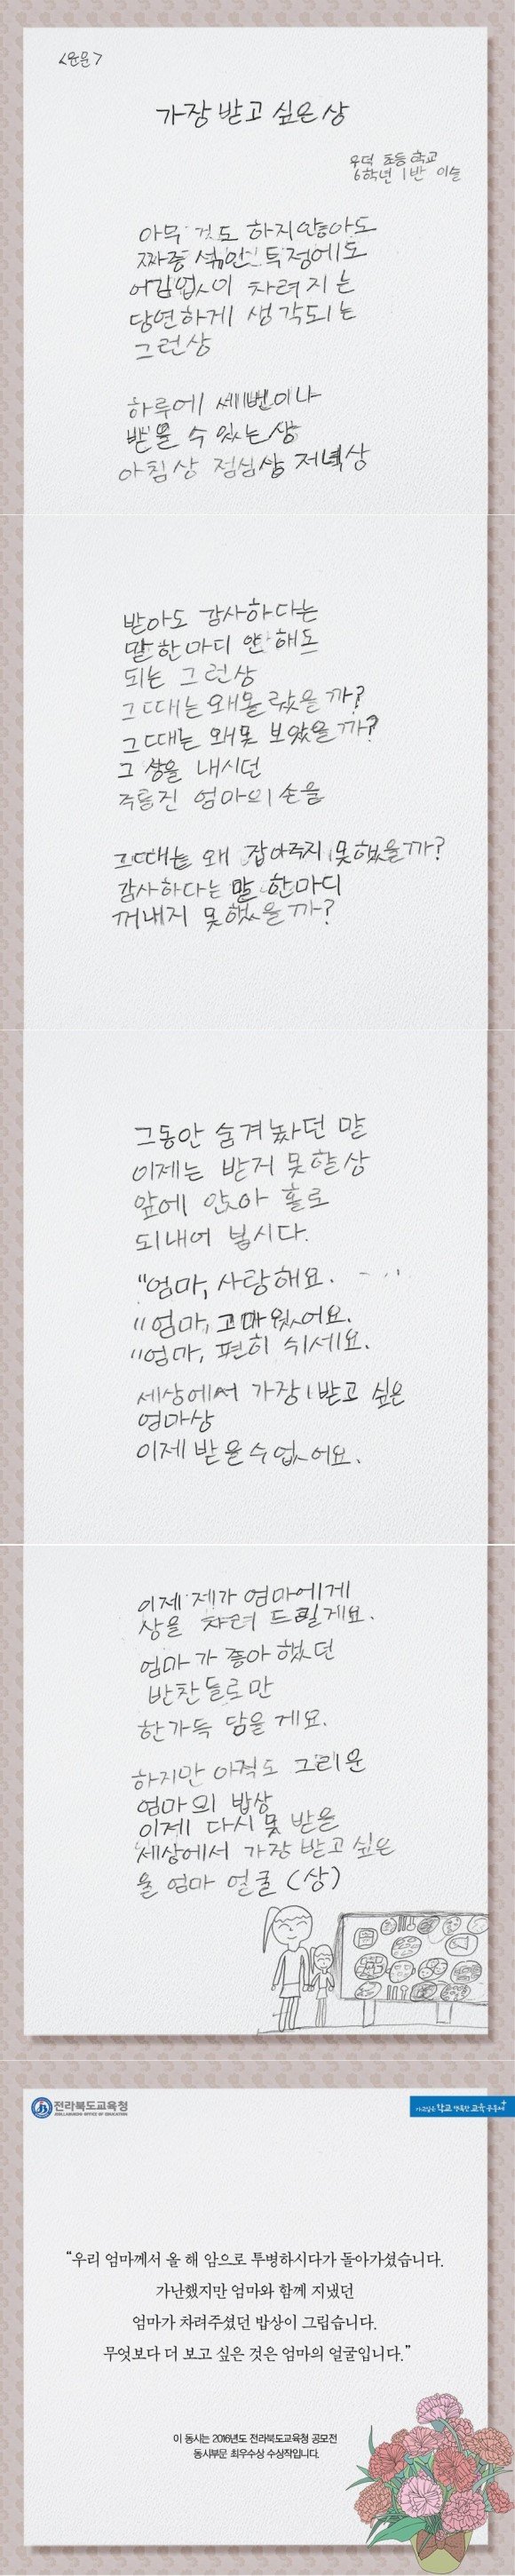 <운문>
가장 받고 싶은 상
우덕 초등학교
6학년 1반 이슬
아무 것도 하지않아도
짜증 섞인 투정에도
어김없이 차려지는
당연하게 생각되는
그런상
하루에 세번이나
받을 수 있는 상
아침상 점심상 저녁상
받아도 감사하다는
말 한마디 안해도
되는 그런상
그때는 왜몰랐을까?
그때는 왜못 보았을까?
그 상을 내시던
주름진 엄마의 손을
그때는 왜 잡아주지 못했을까?
감사하다는 말 한마디
꺼내지 못했을까?
그동안 숨겨놨던 말
이제는 받지 못할상
앞에 앉아 홀로
되내어 봅시다.
"엄마, 사랑해요.
"엄마, 고마웠어요.
"엄마, 편히 쉬세요.
세상에서 가장 받고 싶은
엄마상
이제 받을수없어요.
이제 제가 엄마에게
상을 차려 드릴게요.
엄마가 좋아했던
반찬들로만
한가득 담을게요.
하지만 아직도 그리운
엄마의 밥상
이제 다시 못 받을
세상에서 가장 받고 싶은
울 엄마 얼굴 (상)
전라북도교육청
JEOLLABUKDO OFFICE OF EDUCATION
가고싶은 학교 행복한 교육공동체
“우리 엄마께서 올 해 암으로 투병하시다가 돌아가셨습니다.
가난했지만 엄마와 함께 지냈던
엄마가 차려주셨던 밥상이 그립습니다.
무엇보다 더 보고 싶은 것은 엄마의 얼굴입니다.”
이 동시는 2016년도 전라북도교육청 공모전
동시부문 최우수상 수상작입니다.